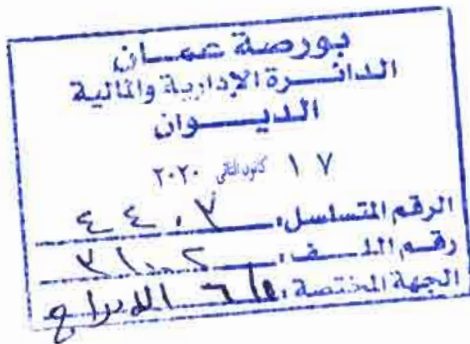 بورصة عمان
الدائرة الإدارية والمالية
الديوان
١٧ كانون الثاني ٢٠٢٠
الرقم المتسلسل:
رقم الملف:
الجهة المختصة: الإدراج